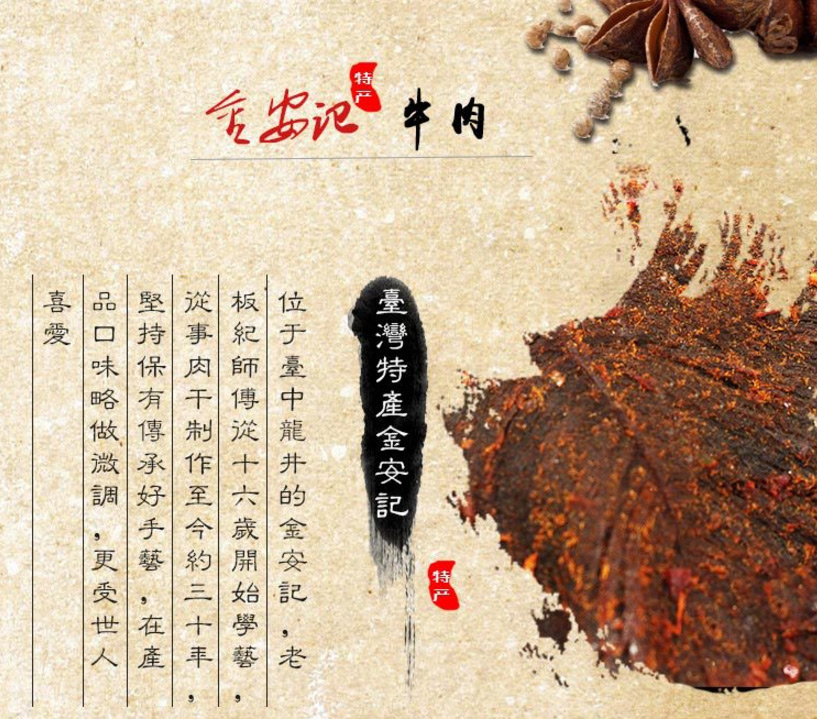 金安记
特产
牛肉
臺灣特產金安記
特产
位于臺中龍井的金安記，老
板紀師傅從十六歲開始學藝，
從事肉干制作至今約三十年，
堅持保有傳承好手藝，在產
品口味略做微調，更受世人
喜愛